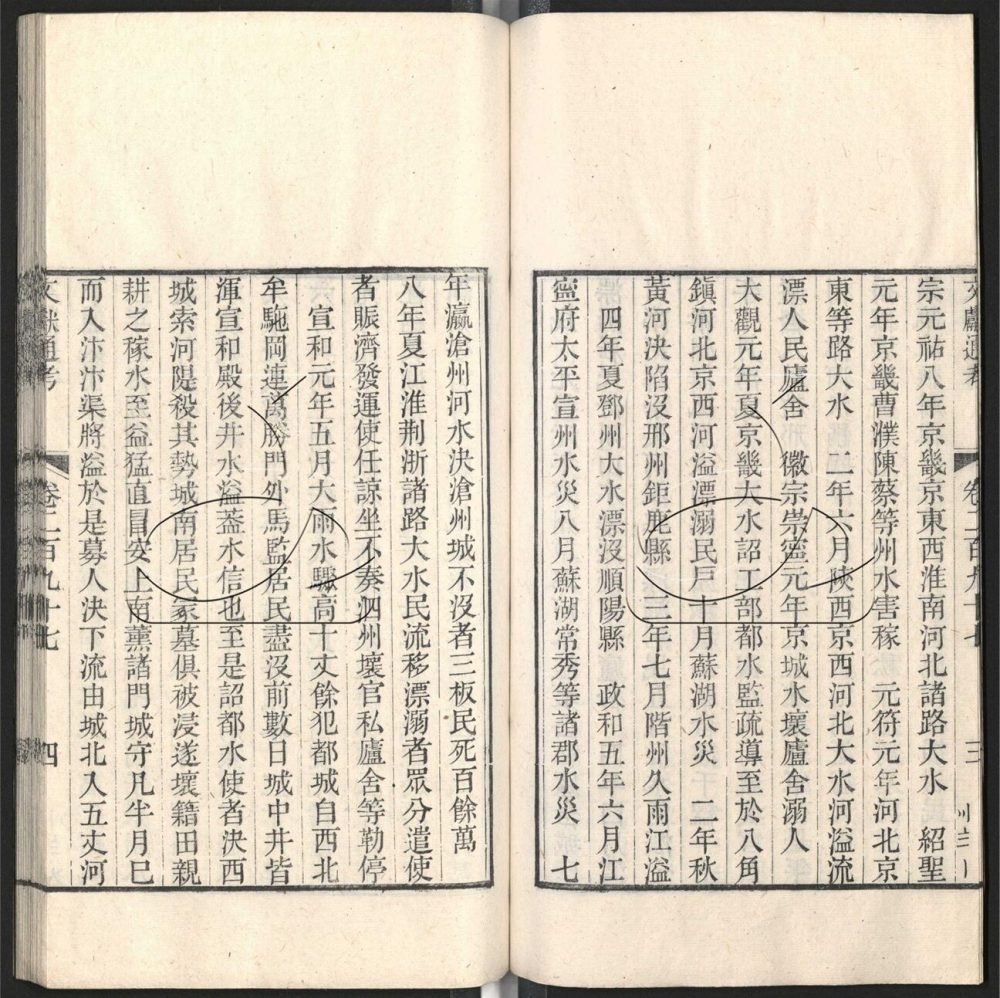 文獻通考 卷二百九十七 三
宗元祐八年京畿京東西淮南河北諸路大水 紹聖
元年京畿曹濮陳蔡等州水害稼 元符元年河北京
東等路大水 二年六月陝西京西河北大水河溢流
漂人民廬舍 徽宗崇寧元年京城水壞廬舍溺人
大觀元年夏京畿大水詔工部都水監疏導至於八角
鎮河北京西河溢漂溺民戸十月蘇湖水災 二年秋
黃河決陷沒邢州鉅鹿縣 三年七月階州久雨江溢
四年夏鄧州大水漂沒順陽縣 政和五年六月江
寧府太平宣州水災八月蘇湖常秀等諸郡水災 七
年瀛滄州河水決滄州城不沒者三板民死百餘萬
八年夏江淮荆浙諸路大水民流移漂溺者眾分遣使
者賑濟發運使任諒坐不奏泗州壞官私廬舍等勒停
宣和元年五月大雨水驟高十丈餘犯都城自西北
牟駞岡連萬勝門外馬監居民盡沒前數日城中井皆
渾宣和殿後井水溢葢水信也至是詔都水使者決西
城索河隄殺其勢城南居民冡墓俱被浸遂壞籍田親
耕之稼水至益猛直冒安上南薰諸門城守凡半月巳
而入汴汴渠將溢於是募人決下流由城北入五丈河
文獻通考 卷二百九十七 四